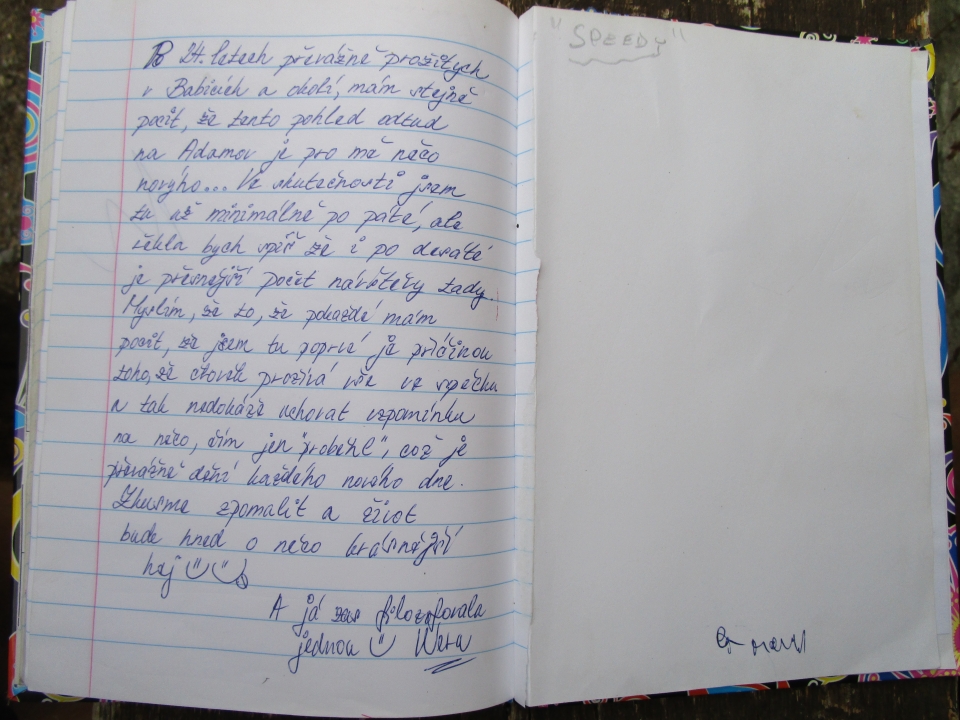 Po 24. letech převážně prožitých
v Babicích a okolí, mám stejně
pocit, že tento pohled odtud
na Adamov je pro mě něco
nového... Ve skutečnosti jsem
tu už minimálně po páté, ale
řekla bych spíš že i po desáté
je přesnější počet návštěvy tady.
Myslím, že to, že pokaždé mám
pocit, že jsem tu poprvé je příčinou
toho, že člověk prožívá vše ve spěchu
a tak nedokáže uchovat vzpomínku
na něco, čím jen "proběhl", což je
převážně dění každého nového dne.
Zkusme zpomalit a život
bude hned o něco krásnější
hej
A já zas filozofovala
jednou Wéra
"SPEEDY"